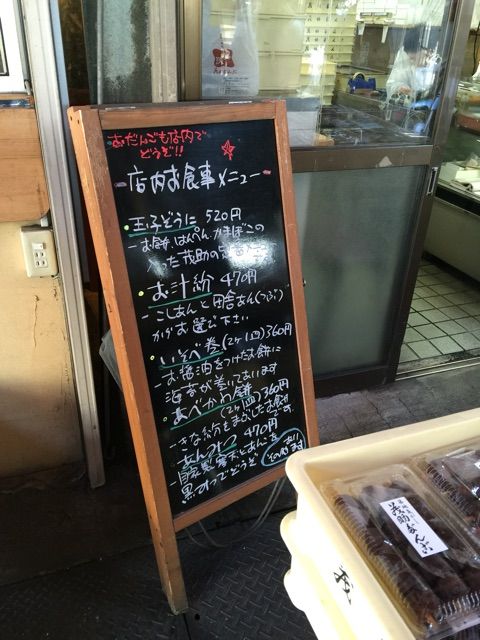 おだんごも店内で
どうぞ!!
店内お食事メニュー
・玉子ぞうに 520円
－お餅 はんぺん かまぼこの
入った茂助の
・お汁粉 470円
－こしあんと田舎あん(つぶ)
からお選び下さい
・いそべ巻(2ヶ1皿)360円
－お醤油をつけたお餅に
海苔が巻いてあります
・あべかわ餅(2ヶ1皿)360円
－きな粉をまぶしたお餅です
・あんみつ 470円
自家製寒天とあんを
黒みつでどうぞ
その他あります
茂助だんご